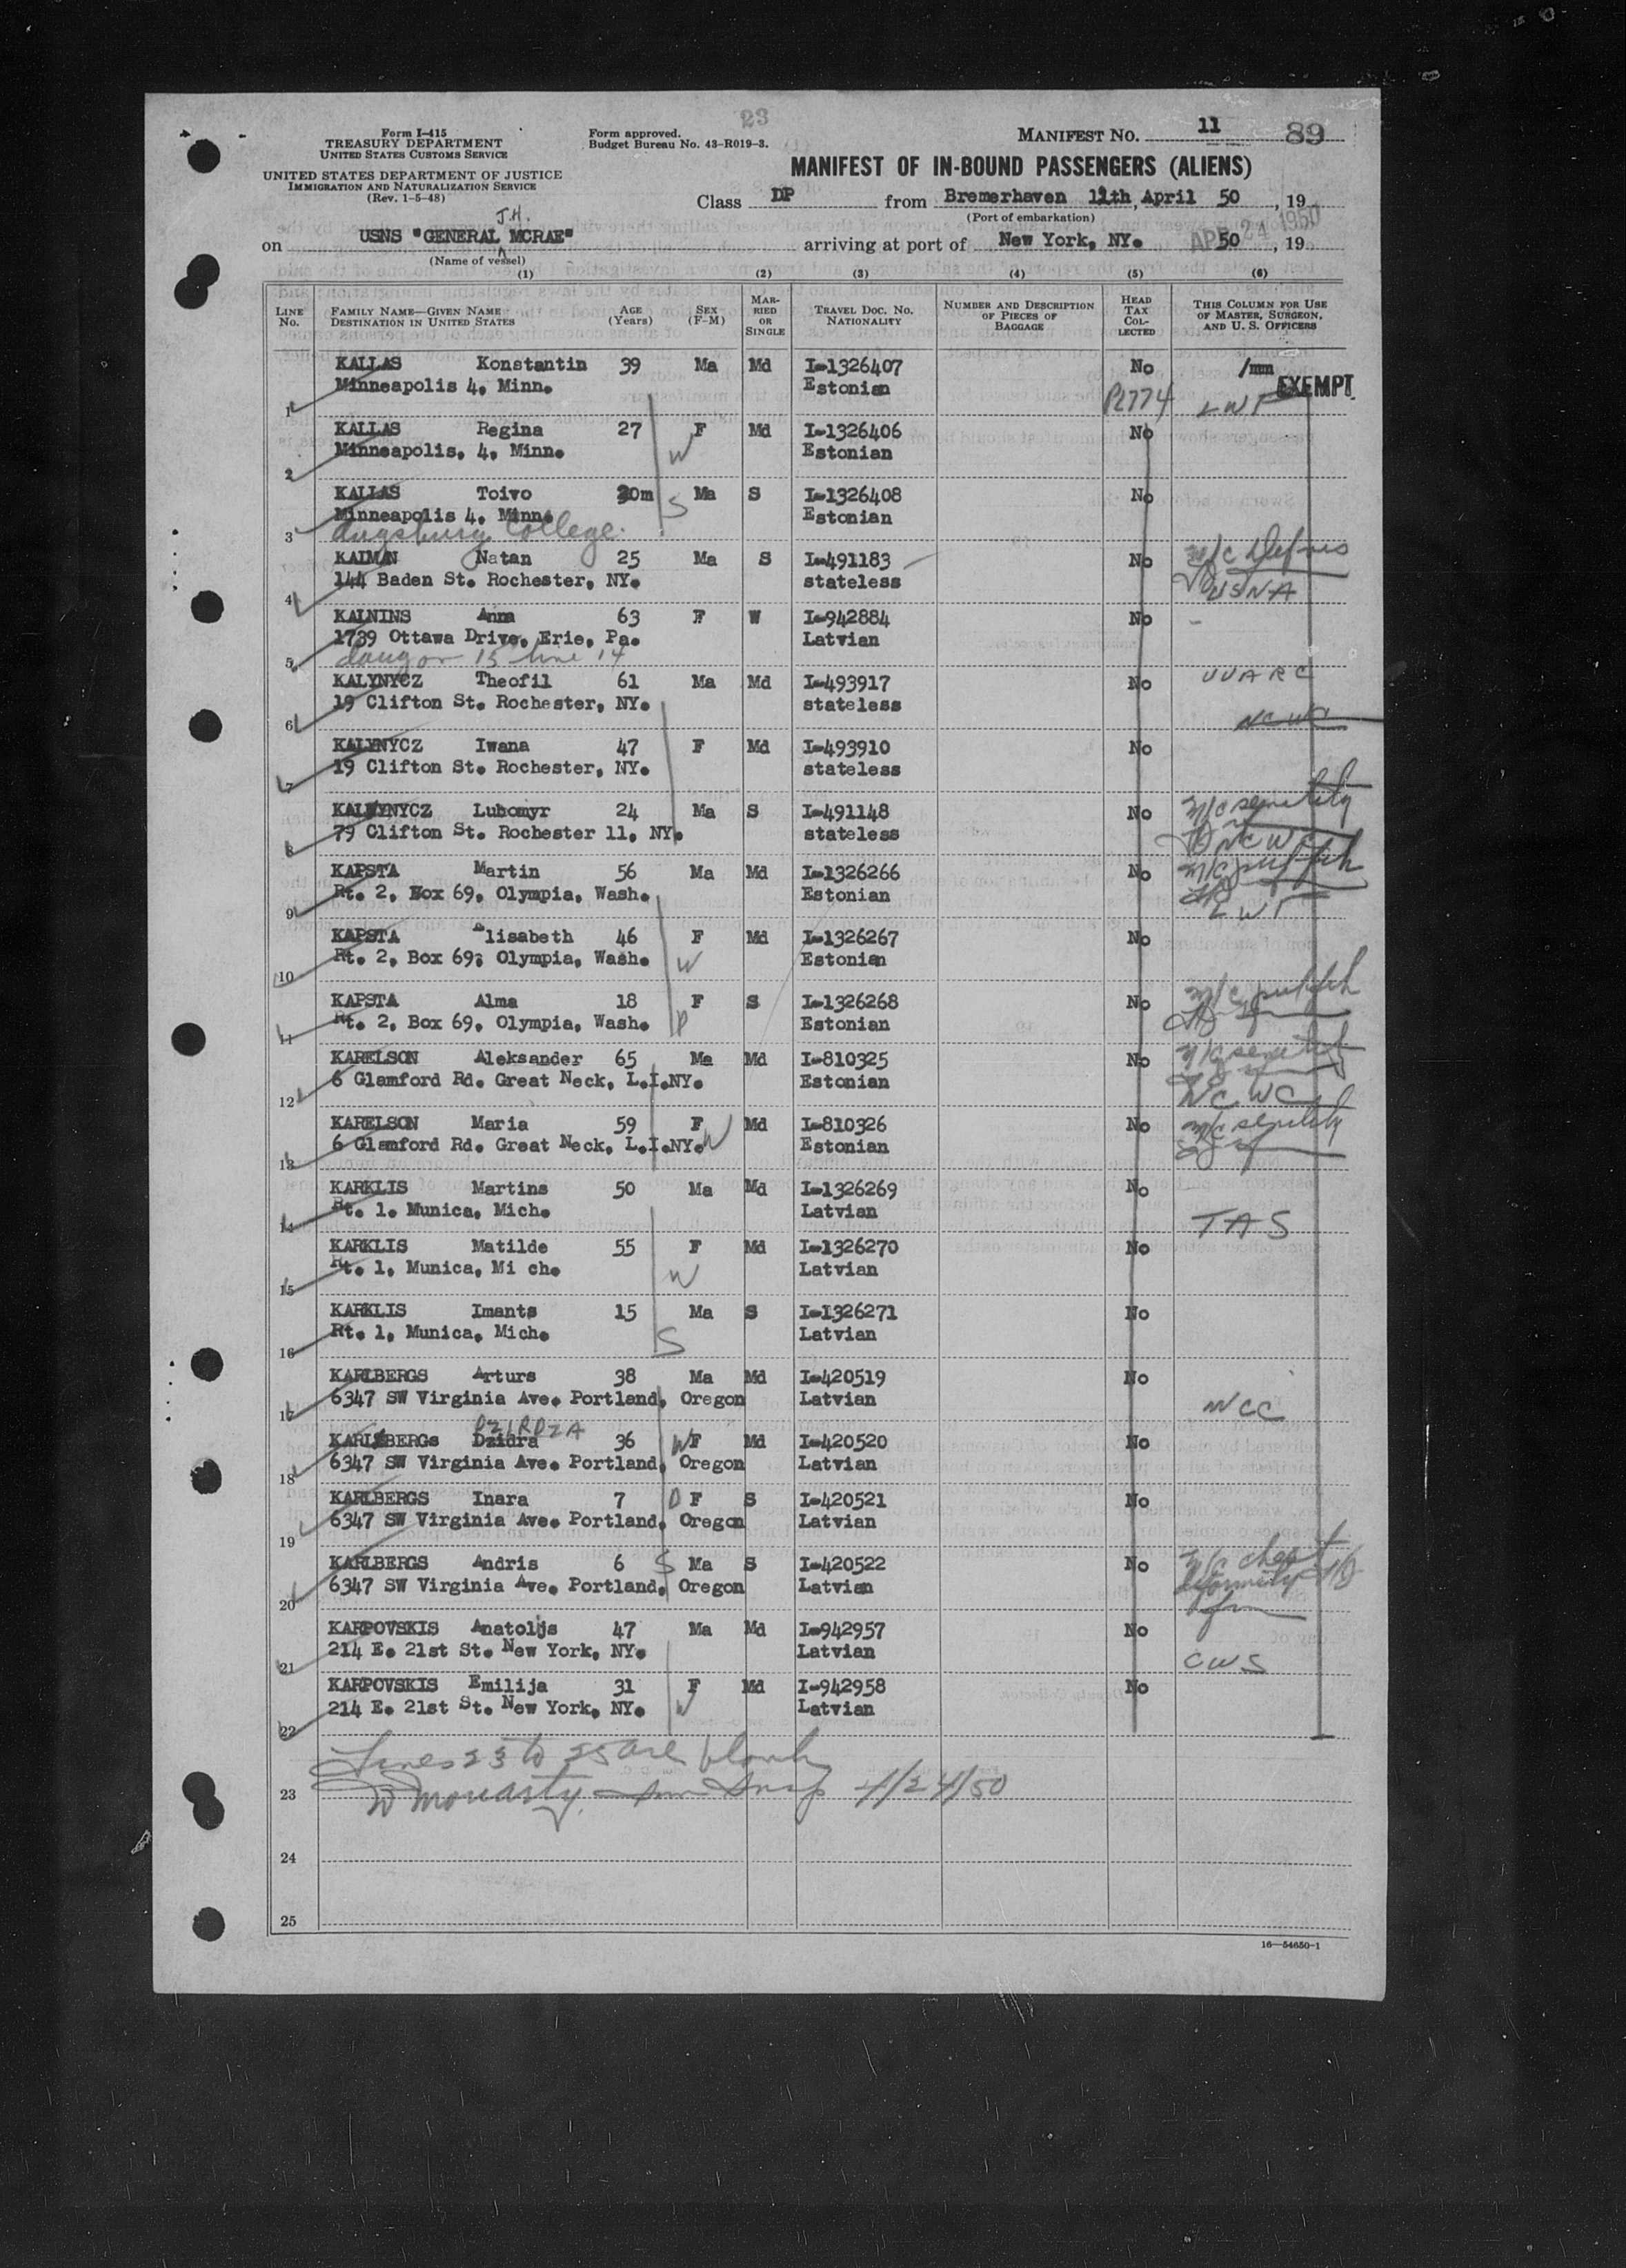 23
Form I-415
TREASURY DEPARTMENT
UNITED STATES CUSTOMS SERVICE
UNITED STATES DEPARTMENT OF JUSTICE
IMMIGRATION AND NATURALIZATION SERVICE
(Rev. 1-5-48)
Form approved.
Budget Bureau No. 43-R019-3.
MANIFEST NO. 11 89
MANIFEST OF IN-BOUND PASSENGERS (ALIENS)
Class DP from Bremerhaven 12th, April 50, 19
(Port of embarkation)
J.H.
on USNS "GENERAL MCRAE" arriving at port of New York, NY. 50, 19
APR 24 1950
(Name of vessel)
(1) (2) (3) (4) (5) (6)
LINE No. FAMILY NAME—GIVEN NAME DESTINATION IN UNITED STATES AGE (Years) SEX (F-M) MARRIED OR SINGLE TRAVEL DOC. NO. NATIONALITY NUMBER AND DESCRIPTION OF PIECES OF BAGGAGE HEAD TAX COLLECTED THIS COLUMN FOR USE OF MASTER, SURGEON, AND U. S. OFFICERS
KALLAS Konstantin 39 Ma Md I-1326407 No /mm
Minneapolis 4, Minn. Estonian EXEMPT
1 P2774 LWF
KALLAS Regina 27 F Md I-1326406 No
Minneapolis, 4, Minn. W Estonian
2
KALLAS Toivo 20m Ma S I-1326408 No
Minneapolis 4, Minn. S Estonian
3 Augsburg College.
KAIMAN Natan 25 Ma S I-491183 No
144 Baden St. Rochester, NY. stateless
4 USNA
KALNINS Anna 63 F W I-942884 No -
1739 Ottawa Drive, Erie, Pa. Latvian
5 line 14
KALYNYCZ Theofil 61 Ma Md I-493917 No UUARC
19 Clifton St. Rochester, NY. stateless
6 NCWC
KALYNYCZ Iwana 47 F Md I-493910 No
19 Clifton St. Rochester, NY. stateless
7
KALYNYCZ Lubomyr 24 Ma S I-491148 No M/C senility
79 Clifton St. Rochester 11, NY. stateless
8 NCWC
KAPSTA Martin 56 Ma Md I-1326266 No
Rt. 2, Box 69, Olympia, Wash. Estonian
9 LWF
KAPSTA Elisabeth 46 F Md I-1326267 No
Rt. 2, Box 69; Olympia, Wash. W Estonian
10
KAPSTA Alma 18 F S I-1326268 No
Rt. 2, Box 69, Olympia, Wash. D Estonian
11
KARELSON Aleksander 65 Ma Md I-810325 No M/C senility
6 Glamford Rd. Great Neck, L.I.NY. Estonian
12 NCWC
KARELSON Maria 59 F Md I-810326 No M/C senility
6 Glamford Rd. Great Neck, L.I.NY. W Estonian
13
KARKLIS Martins 50 Ma Md I-1326269 No
Rt. 1. Munica, Mich. Latvian
14 TAS
KARKLIS Matilde 55 F Md I-1326270 No
Rt. 1, Munica, Mi ch. W Latvian
15
KARKLIS Imants 15 Ma S I-1326271 No
Rt. 1, Munica, Mich. S Latvian
16
KARLBERGS Arturs 38 Ma Md I-420519 No
6347 SW Virginia Ave. Portland, Oregon Latvian
17 NCC
DZIRDZA
KARLBERGs Dzidra 36 W F Md I-420520 No
6347 SW Virginia Ave. Portland, Oregon Latvian
18
KARLBERGS Inara 7 D F S I-420521 No
6347 SW Virginia Ave. Portland, Oregon Latvian
19
KARLBERGS Andris 6 S Ma S I-420522 No M/C chest
6347 SW Virginia Ave. Portland, Oregon Latvian deformity
20
KARPOVSKIS Anatolijs 47 Ma Md I-942957 No
214 E. 21st St. New York, NY. Latvian
21 CWS
KARPOVSKIS Emilija 31 F Md I-942958 No
214 E. 21st St. New York, NY. W Latvian
22
Lines 23 to 25 are blank
23 Insp 4/24/50
24
25
16—54650-1